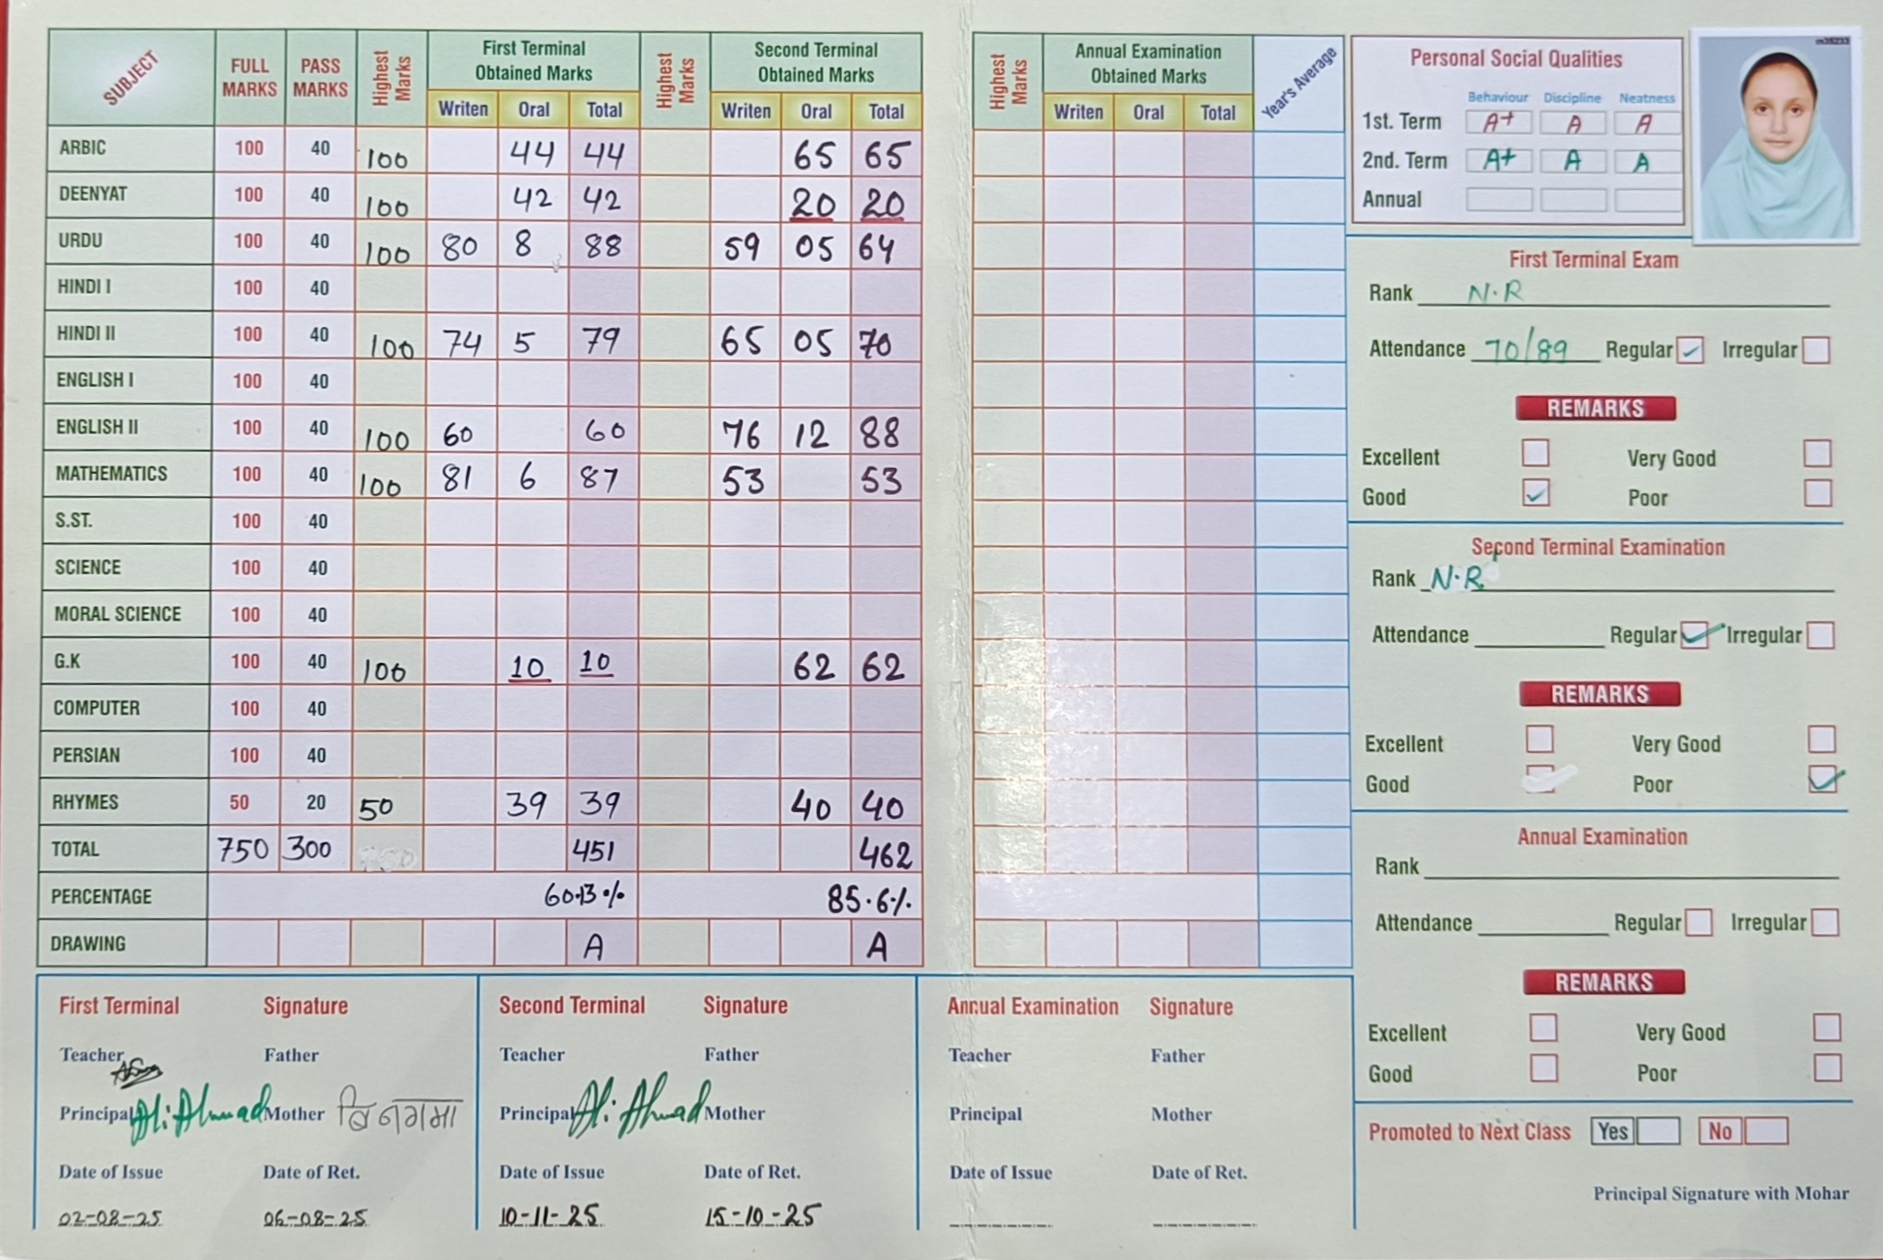 SUBJECT FULL MARKS PASS MARKS Highest Marks First Terminal Obtained Marks Highest Marks Second Terminal Obtained Marks Highest Marks Annual Examination Obtained Marks Year's Average
Writen Oral Total Writen Oral Total Writen Oral Total
ARBIC 100 40 100 44 44 65 65
DEENYAT 100 40 100 42 42 20 20
URDU 100 40 100 80 8 88 59 05 64
HINDI I 100 40
HINDI II 100 40 100 74 5 79 65 05 70
ENGLISH I 100 40
ENGLISH II 100 40 100 60 60 76 12 88
MATHEMATICS 100 40 100 81 6 87 53 53
S.ST. 100 40
SCIENCE 100 40
MORAL SCIENCE 100 40
G.K 100 40 100 10 10 62 62
COMPUTER 100 40
PERSIAN 100 40
RHYMES 50 20 50 39 39 40 40
TOTAL 750 300 451 462
PERCENTAGE 60.13% 85.6%
DRAWING A A
First Terminal Signature
Teacher Father
Principal Ali Ahmad Mother
Date of Issue Date of Ret.
02-08-25 06-08-25
Second Terminal Signature
Teacher Father
Principal Ali Ahmad Mother
Date of Issue Date of Ret.
10-11-25 15-10-25
Annual Examination Signature
Teacher Father
Principal Mother
Date of Issue Date of Ret.
Personal Social Qualities
Behaviour Discipline Neatness
1st. Term A+ A A
2nd. Term A+ A A
Annual
First Terminal Exam
Rank N.R
Attendance 70/89 Regular Irregular
REMARKS
Excellent Very Good
Good Poor
Second Terminal Examination
Rank N.R
Attendance Regular Irregular
REMARKS
Excellent Very Good
Good Poor
Annual Examination
Rank
Attendance Regular Irregular
REMARKS
Excellent Very Good
Good Poor
Promoted to Next Class Yes No
Principal Signature with Mohar